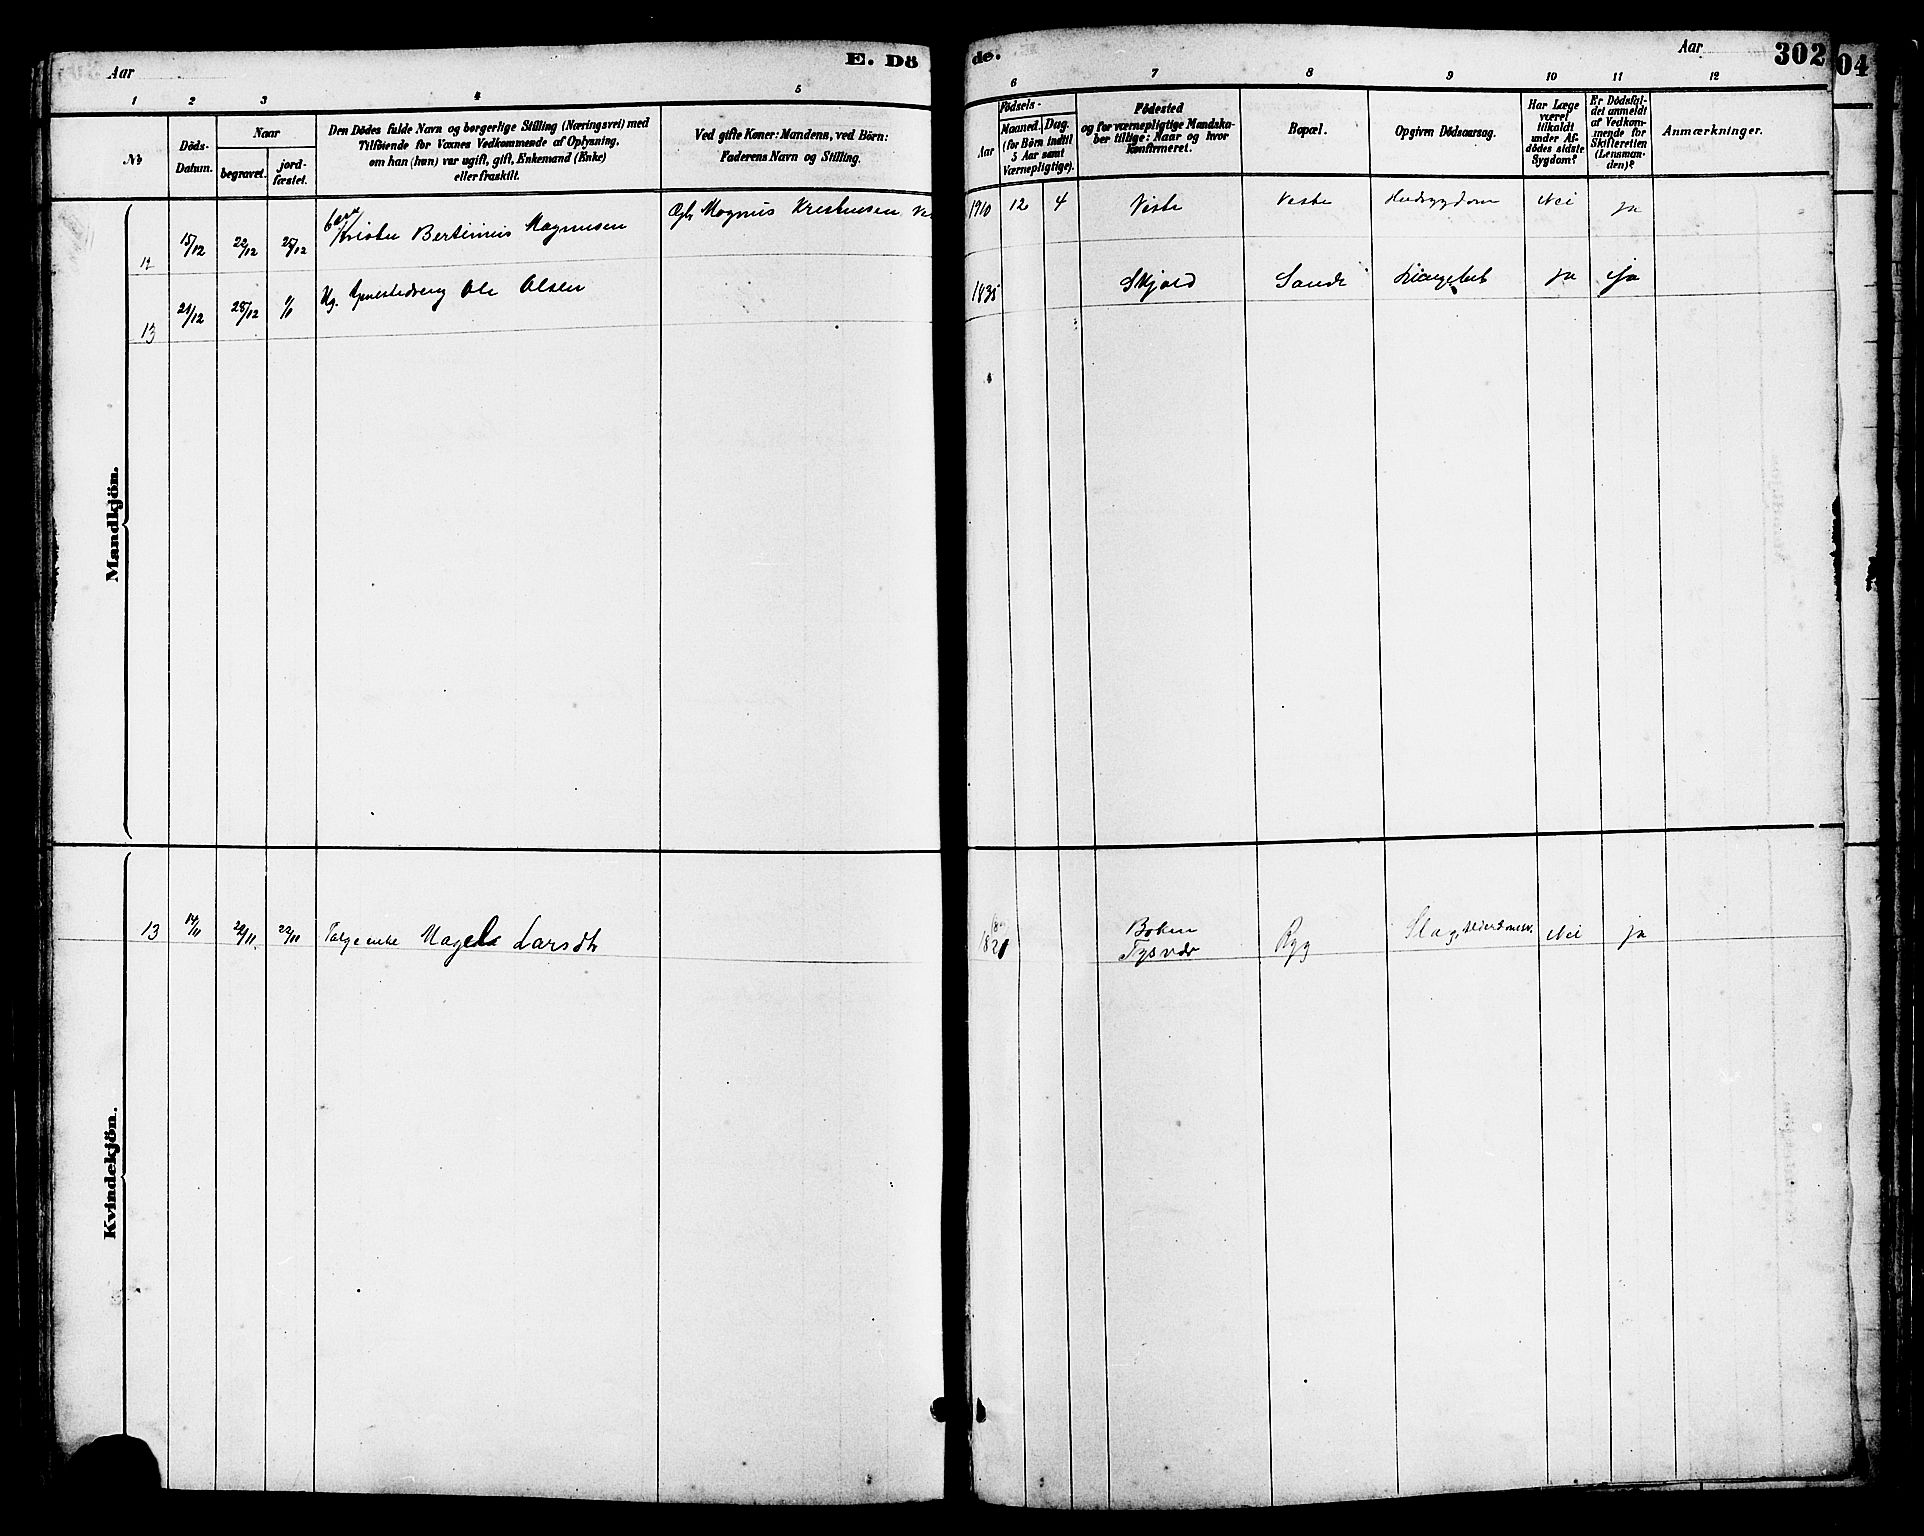 Aar
E. Dö
de.
Aar
302
04
1 2 3 4 5 6 7 8 9 10 11 12
No
Döds-
Datum.
Naar
begravet.
jord-
fæstet.
Den Dödes fulde Navn og borgerlige Stilling (Næringsvei) med
Tilföiende for Voxnes Vedkommende af Oplysning,
om han (hun) var ugift, gift, Enkemand (Enke)
eller fraskilt.
Ved gifte Koner: Mandens, ved Börn:
Faderens Navn og Stilling.
Födsels-
Aar
Maaned. Dag.
(for Börn indtil
5 Aar samt
Værnepligtige).
Födested
og for værnepligtige Mandska-
ber tillige: Naar og hvor
konfirmeret.
Bopæl.
Opgiven Dödsaarsag.
Har Læge
været
tilkaldt
under Af-
dödes sidste
Sygdom?
Er Dödsfal-
det anmeldt
af Vedkom-
mende for
Skifteretten
(Lensman-
den)?
Anmærkninger.
Mandkjön.
12 15/12 22/12 Bertinius Magnusen Magnus Kristensen 1910 12 4 Veste Nei ja
13 21/12 28/12 1/1 Kg. Ole Olsen 1835 Skjold Sande ja ja
Kvindekjön.
13 14/11 22/11 22/11 Larsdt 1821 Boken
Tysvær Ryg Slag, Nei ja